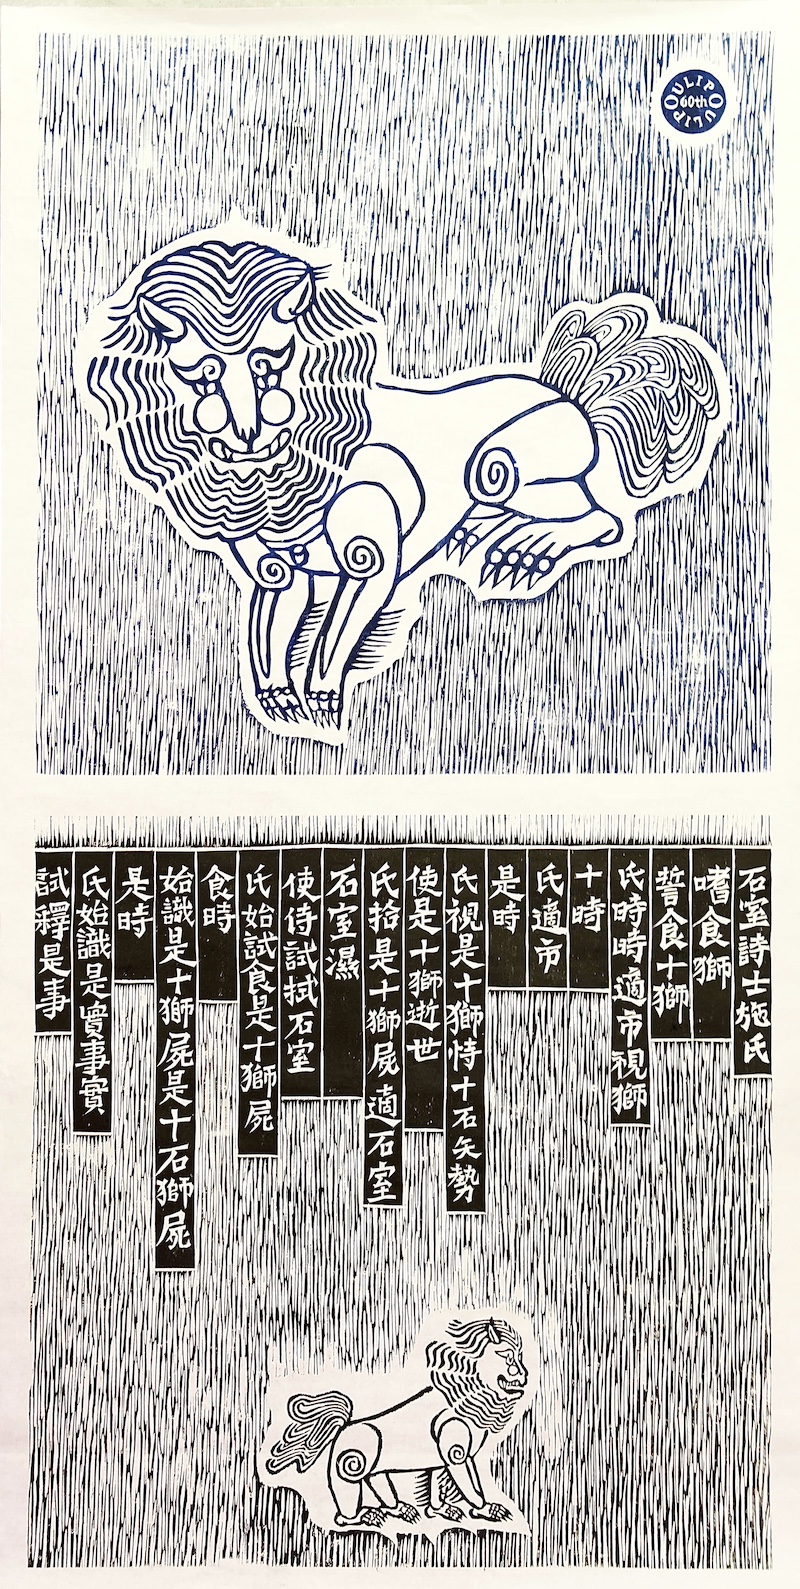 OULIPO
60th
OULIPO
石室詩士施氏
嗜食獅
誓食十獅
氏時時適市視獅
十時
氏適市
是時
氏視是十獅恃十石矢勢
使是十獅逝世
氏拾是十獅屍適石室
石室濕
使侍試拭石室
氏始試食是十獅屍
食時
始識是十獅屍是十石獅屍
是時
氏始識是實事實
試釋是事